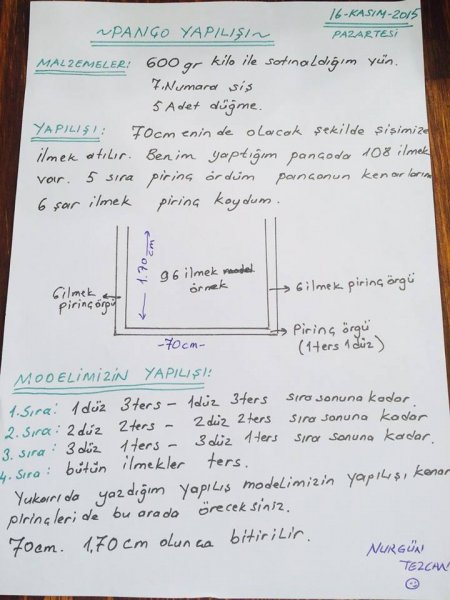 16-KASIM-2015
~PANÇO YAPILIŞI~
PAZARTESİ
MALZEMELER: 600 gr kilo ile satınaldığım yün.
7. Numara şiş
5 Adet düğme.
YAPILIŞI: 70cm enin de olacak şekilde şişimize
ilmek atılır. Benim yaptığım pançoda 108 ilmek
var. 5 sıra pirinç ördüm pançonun kenarlarına
6 şar ilmek pirinç koydum.
1.70cm
96 ilmek model
örnek
6 ilmek
pirinç örgü
6 ilmek pirinç örgü
-70cm-
Pirinç örgü
(1 ters 1 düz)
MODELİMİZİN YAPILIŞI:
1. Sıra: 1 düz 3 ters - 1 düz 3 ters sıra sonuna kadar.
2. Sıra: 2 düz 2 ters - 2 düz 2 ters sıra sonuna kadar
3. sıra: 3 düz 1 ters - 3 düz 1 ters sıra sonuna kadar.
4. Sıra: bütün ilmekler ters.
Yukarıda yazdığım yapılış modelimizin yapılışı kenar
pirinçleri de bu arada öreceksiniz.
70cm. 1,70 cm olunca bitirilir.
NURGÜN
TEZCAN